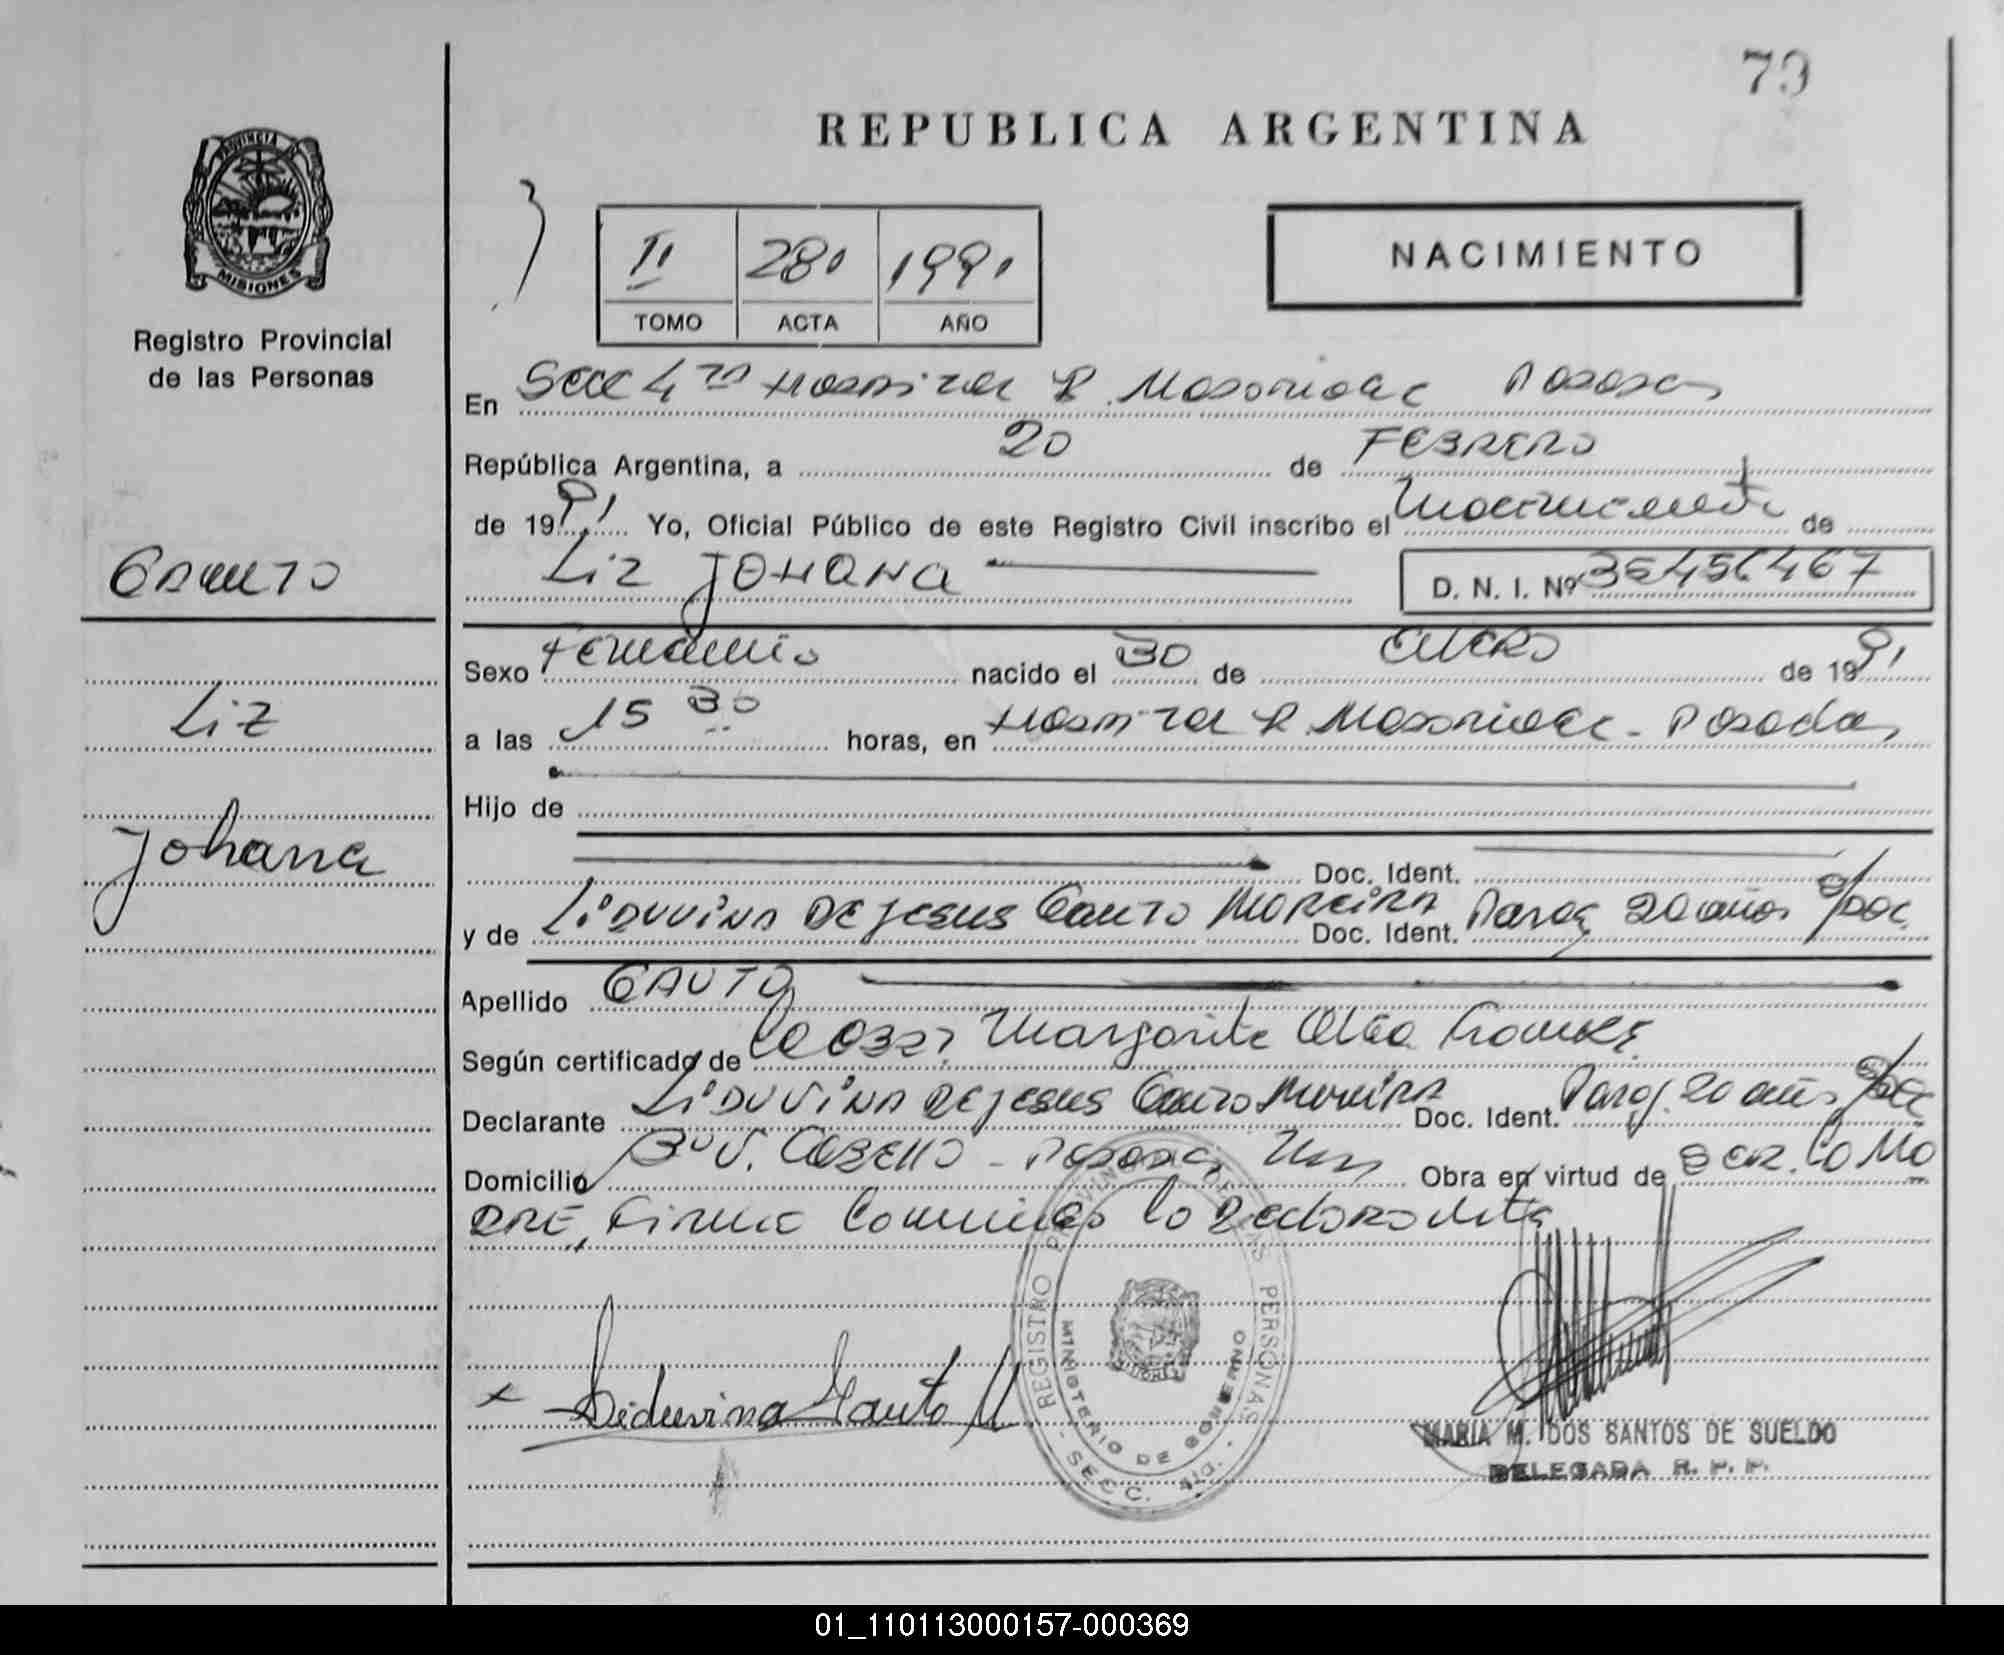 79
REPUBLICA ARGENTINA
PROVINCIA DE
MISIONES
Registro Provincial
de las Personas
II 280 1991
TOMO ACTA AÑO
NACIMIENTO
En Secc 4ta Hospital R. Madariaga Posadas
República Argentina, a 20 de FEBRERO
de 1991 Yo, Oficial Público de este Registro Civil inscribo el Nacimiento de
Liz JOHANA D. N. I. Nº
GAUTO
Liz
Johana
Sexo Femenino nacido el 30 de ENERO de 1991
a las 15 30 horas, en Hospital R. Madariaga - Posadas
Hijo de
Doc. Ident.
y de LiDUVINA DE JESUS Gauto MOREIRA Doc. Ident. Parag 20 años S/Doc
Apellido GAUTO
Según certificado de Margarita Olga
Declarante LiDUVINA DE JESUS Gauto Moreira Doc. Ident. Parag. 20 años S/Doc
Domicilio Posadas Mnes Obra en virtud de SER. LA MA
DRE, Firma
Liduvina Gauto M
REGISTRO PROVINCIAL DE LAS PERSONAS
MINISTERIO DE GOBIERNO
SECC. 4ta.
MARIA M. DOS SANTOS DE SUELDO
DELEGADA R. P. P.
01_110113000157-000369